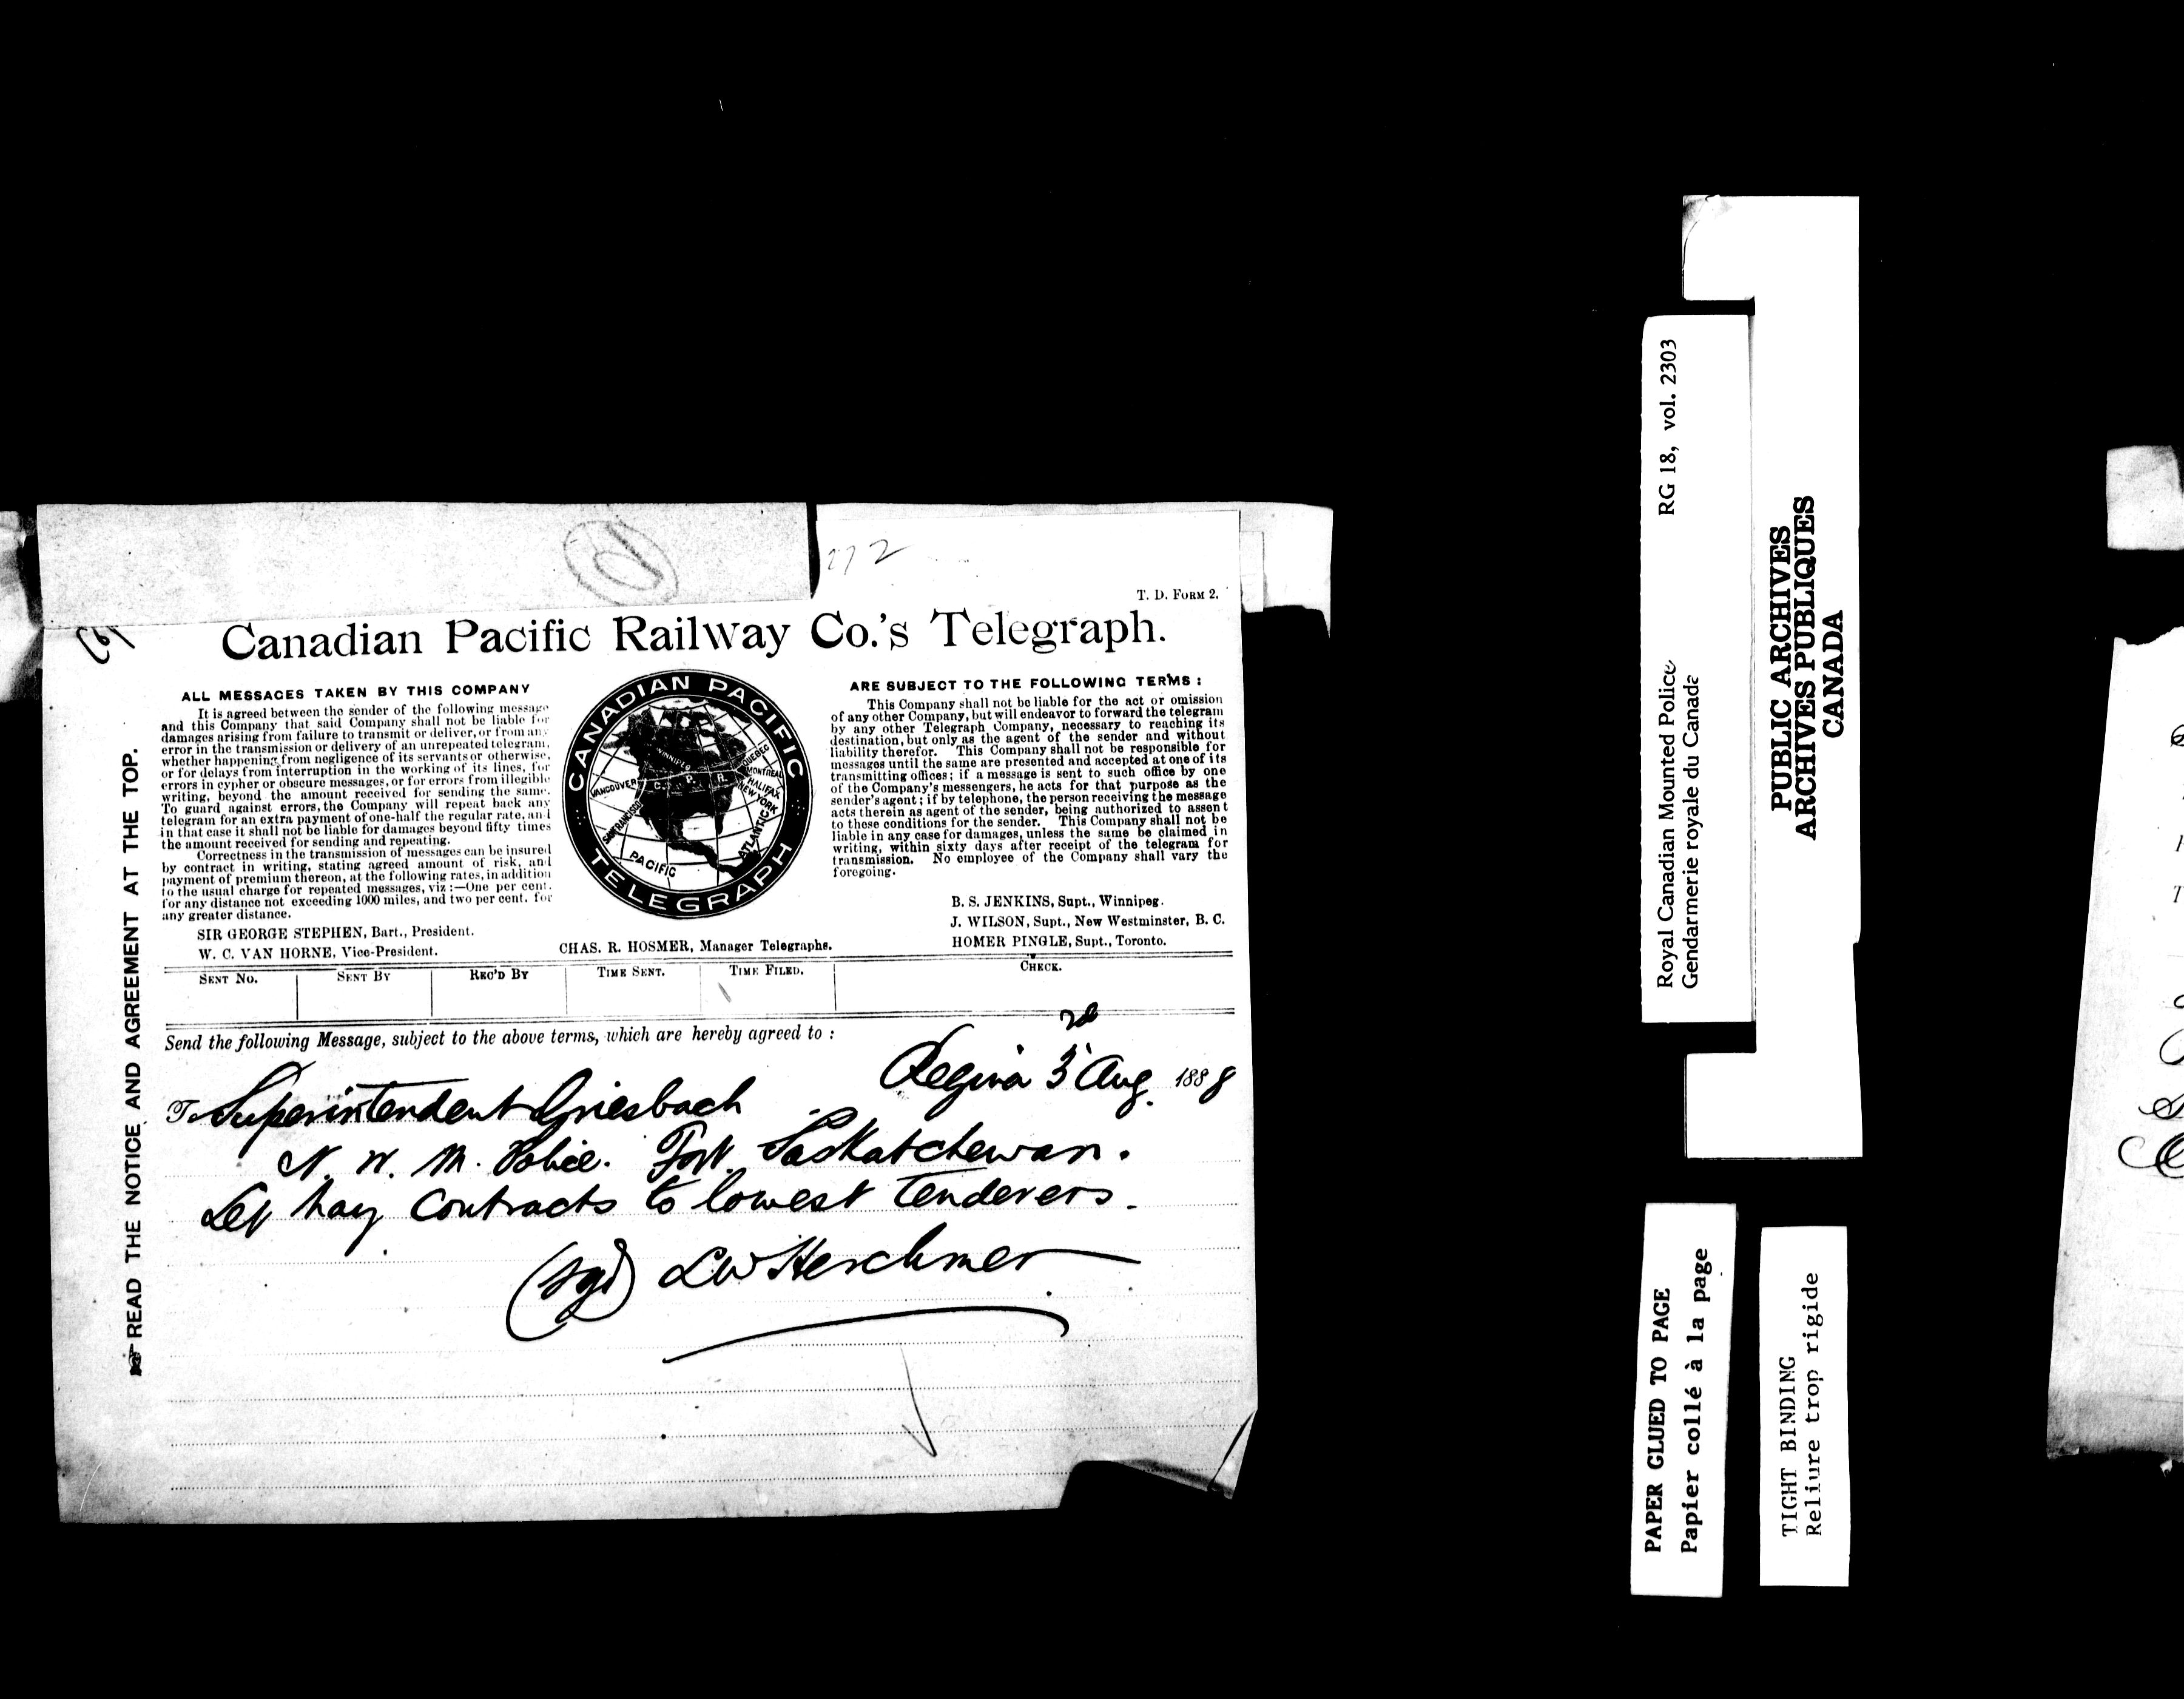 272
T. D. FORM 2.
Canadian Pacific Railway Co.'s Telegraph.
READ THE NOTICE AND AGREEMENT AT THE TOP.
ALL MESSAGES TAKEN BY THIS COMPANY
It is agreed between the sender of the following message
and this Company that said Company shall not be liable for
damages arising from failure to transmit or deliver, or from any
error in the transmission or delivery of an unrepeated telegram,
whether happening from negligence of its servants or otherwise,
or for delays from interruption in the working of its lines, for
errors in cypher or obscure messages, or for errors from illegible
writing, beyond the amount received for sending the same.
To guard against errors, the Company will repeat back any
telegram for an extra payment of one-half the regular rate, and
in that case it shall not be liable for damages beyond fifty times
the amount received for sending and repeating.
Correctness in the transmission of messages can be insured
by contract in writing, stating agreed amount of risk, and
payment of premium thereon, at the following rates, in addition
to the usual charge for repeated messages, viz :—One per cent.
for any distance not exceeding 1000 miles, and two per cent. for
any greater distance.
SIR GEORGE STEPHEN, Bart., President.
W. C. VAN HORNE, Vice-President.
CANADIAN PACIFIC
TELEGRAPH
WINNIPEG
QUEBEC
MONTREAL
HALIFAX
NEW YORK
VANCOUVER
C. P. R.
SAN FRANCISCO
ATLANTIC
PACIFIC
CHAS. R. HOSMER, Manager Telegraphs.
ARE SUBJECT TO THE FOLLOWING TERMS :
This Company shall not be liable for the act or omission
of any other Company, but will endeavor to forward the telegram
by any other Telegraph Company, necessary to reaching its
destination, but only as the agent of the sender and without
liability therefor. This Company shall not be responsible for
messages until the same are presented and accepted at one of its
transmitting offices; if a message is sent to such office by one
of the Company's messengers, he acts for that purpose as the
sender's agent; if by telephone, the person receiving the message
acts therein as agent of the sender, being authorized to assent
to these conditions for the sender. This Company shall not be
liable in any case for damages, unless the same be claimed in
writing, within sixty days after receipt of the telegram for
transmission. No employee of the Company shall vary the
foregoing.
B. S. JENKINS, Supt., Winnipeg.
J. WILSON, Supt., New Westminster, B. C.
HOMER PINGLE, Supt., Toronto.
SENT NO. SENT BY REC'D BY TIME SENT. TIME FILED. CHECK.
Send the following Message, subject to the above terms, which are hereby agreed to :
Regina 3rd Aug. 1888
To Superintendent Griesbach
N. W. M. Police. Fort Saskatchewan.
Let hay contracts to lowest tenderers.
(sgd) LW Herchmer
Royal Canadian Mounted Police RG 18, vol. 2303
Gendarmerie royale du Canada
PUBLIC ARCHIVES
ARCHIVES PUBLIQUES
CANADA
PAPER GLUED TO PAGE
Papier collé à la page
TIGHT BINDING
Reliure trop rigide